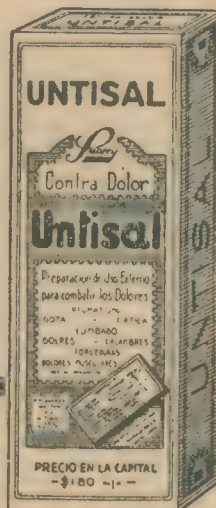 UNTISAL
UNTISAL
Contra Dolor
Untisal
Preparacion de Uso Externo
para combatir los Dolores
GOTA - CIATICA
LUMBAGO
GOLPES - CALAMBRES
TORCEDURAS
DOLORES MUSCULARES
PRECIO EN LA CAPITAL
-$1.80-
UNTISAL